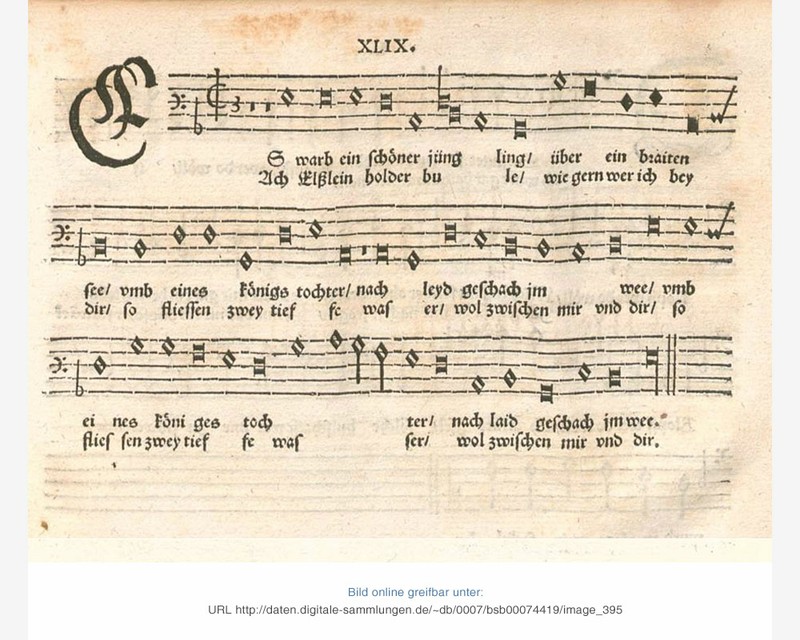 XLIX.
ES warb ein schöner jüng ling/ über ein braiten
Ach Elßlein holder bu le/ wie gern wer ich bey
see/ vmb eines königs tochter/ nach leyd geschach jm wee/ vmb
dir/ so fliessen zwey tief fe was er/ wol zwischen mir vnd dir/ so
ei nes köni ges toch ter/ nach laid geschach jm wee.
flies sen zwey tief fe was ser/ wol zwischen mir vnd dir.
Bild online greifbar unter:
URL http://daten.digitale-sammlungen.de/~db/0007/bsb00074419/image_395